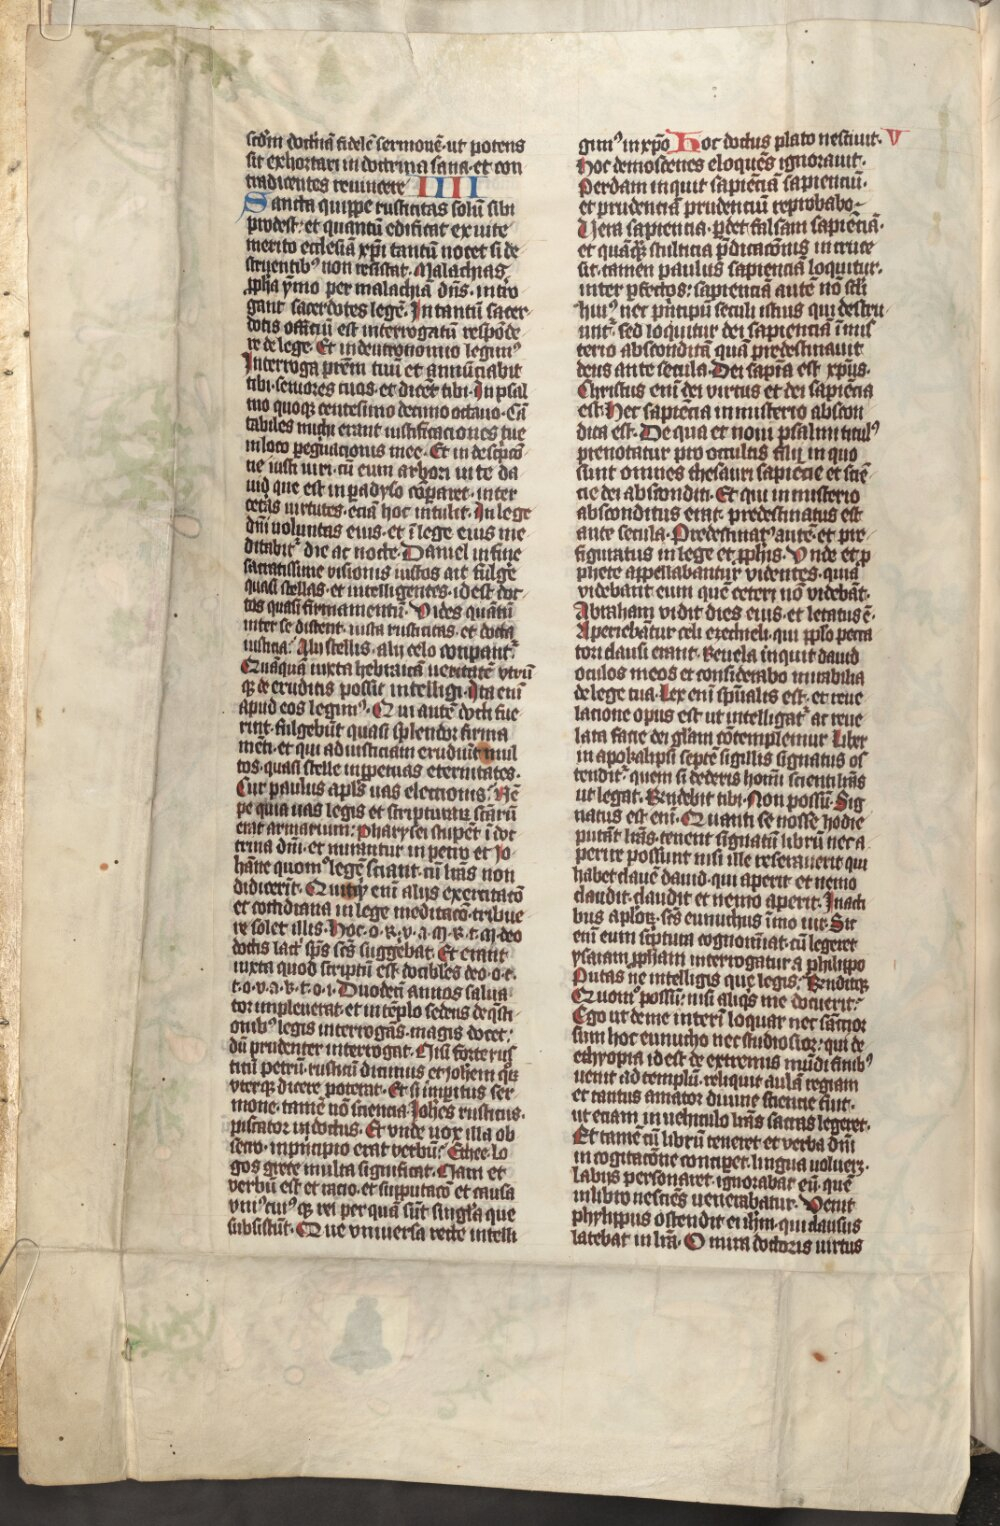 scdm doctrinā fidelē sermonē· ut potens
sit exhortari in doctrina sana· et con
tradicentes revincere IIII
Sancta quippe rusticitas solū sibi
prodest: et quantū edificat ex uite
merito ecclesiā xp̄i tantū nocet si de
struentibꝰ non resistat· Malachias
ꝓpha ymo per malachiā dn̄s· intro
gant sacerdotes legē· In tantū sacer
dotis officiū est interrogatū respōde
re de lege· Et in deutronomio legimꝰ
Interroga prēm tuū et annūciabit
tibi· seniores tuos et dicēt tibi· In psal
mo quoqꝫ centesimo decimo octavo· Cā
tabiles michi erant iustificaciones tue
in loco pegrinacionis mee· Et in descpcō
ne iusti viri· cū eum arbori vite da
uid que est in padyso cōparet· inter
ceteras virtutes· eciā hoc intulit· In lege
dn̄i voluntas eius· et ī lege eius me
ditabitr̄ die ac nocte· Daniel in fine
sacratissime visionis iustos ait fulgē
quasi stellas· et intelligentes· id est doc
tos quasi firmamentū· Vides quantū
inter se distent· iusta rusticitas· et docta
iusticia· Alii stellis· alii celo conparantr̄
Quāquā iuxta hebraicā veritatē utrū
qꝫ de eruditis possūt intelligi· Ita enī
apud eos legimꝰ· Qui autē docti fue
rint· fulgebūt quasi splendor firma
mēti· et qui ad iusticiam erudiūt mul
tos· quasi stelle in ꝑpetuas eternitates·
Cur paulus apls̄ uas electionis? Nē
pe quia uas legis et scripturarū sctārū
erat armarium· Pharysei stupēt ī doc
trina dn̄i· et mirantur in petro et Jo
hāne quomō legē sciant· cū lr̄as non
didicerīt· Quitqͥd enī aliis exercitatō
et cottidiana in lege meditacō tribue
re solet· illis· Hoc· O· R· V· A· M· R· T· M· deo
doctis
 sp̄s scs̄ suggēbat· Et erant
iuxta quod scriptū est· docibiles deo· o· t·
t· o· v· a· v· t· o· i· Duodecī annos salua
tor impleuerat· et in tēplo sedens de q̄sti
onibꝰ legis interrogās· magis docet·
dū prudenter interrogat· Nisi forte rus
ticū petrū· rusticū dicimus et Johēm qꝰ
uterqꝫ dicere poterat· Et si imperitus ser
mone· tamē nō sciencia· Johēs rusticus·
piscator indoctus· Et unde vox illa ob
secro· in principio erat verbū? Ethec· Lo
gos grece multa significat· Nam et
verbū est et racio· et supputacō et causa
uniꝰcuiꝰqꝫ rei per quā sūt singl̄a que
subsistūt· Que universa recte intelli
gimꝰ in xp̄o Hoc doctus plato nescivit· V
Hoc demostenes eloquēs ignoravit·
Perdam inquit sapiēciā sapienciū·
et prudenciā prudenciū reprobabo·
Vera sapiencia· ꝑdet falsam sapiēciā·
et quāqꝫ stulticia p̄dicacōnis in cruce
sit· tamen paulus sapienciā loquitur·
inter ꝑfectos: sapienciā autē nō scli
huiꝰ nec pn̄cipū seculi istius qui destru
unt̄· sed loquitur dei sapienciā ī mis
terio absconditā quā predestinavit
deus ante secula· Dei sapia est xp̄us·
Christus enī dei virtus et dei sapiēcia
est· Hec sapiēcia in misterio abscon
dita est· De qua et noni psalmi titulꝰ
prenotatur pro occultis filii· in quo
sunt omnes thesauri sapiēcie et sciē
cie dei absconditi· Et qui in misterio
absconditus erat· predestinatus est
ante secula· Predestinatꝰ autē· et pre
figuratus in lege et ꝓphis· Unde et ꝓ
phete appellabantur videntes· quia
videbant eum quē ceteri nō videbāt·
Abraham vidit dies eius· et letatus ē·
Aperiebātur celi ezechieli· qui pplo pecca
tori clausi erant· Revela inquit david
oculos meos et considerabo mirabilia
de lege tua· Lex enī sp̄ualis est· et reve
lacione opus est ut intelligatr̄ ac reve
lata facie dei gl̄am cōtemplemur Liber
in apokalipsi septē sigillis signatus os
tenditr̄· quem si dederis homī scienti lr̄as
ut legat· Rn̄debit tibi· Non possū· Sig
natus est enī· Quanti se nosse hodie
putāt lr̄as· tenent signatū librū nec a
perire possunt nisi ille reseraverit qui
habet clavē david· qui aperit et nemo
claudit· claudit et nemo aperit· In acti
bus aplorꝫ· scs̄ eunuchus īmo vir· Sic
enī eum scptura cognomīat· cū legeret
ysaiam ꝓphām interrogatur a philippo
Putas ne intelligis que legis? Rn̄ditqꝫ
Quomō possū: nisi aliqͥs me docuerit?
Ego ut de me interī loquar nec sāctior
sum hoc eunucho nec studiosior: qui de
ethyopia id est de extremis mūdi finibꝰ
venit ad templū· reliquit aulā regiam
et tantus amator divine sciencie fuit·
ut eciam in vehiculo lr̄as sacras legeret·
Et tamē cū librū teneret et verba dn̄i
in cogitacōne conciperet· lingua volverꝫ·
labiis personaret· ignorabat eū· quē
in libro nesciēs venerabatur· Venit
phylippus ostendit ei ihm̄· qui clausus
latebat in lr̄a· O mira doctoris virtus